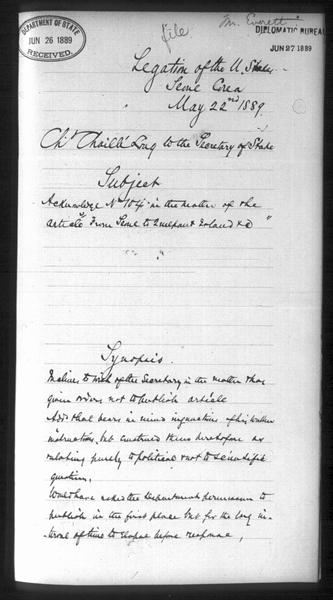 DEPARTMENT OF STATE
JUN 26 1889
RECEIVED.
file
Mr. Everett
DIPLOMATIC BUREAU
JUN 27 1889
Legation of the U. States
Seoul Corea
May 22nd 1889.
Chaillé Long to the Secretary of State
Subject
Acknowledge No 104 in the matter of the
article "From Seoul to Quelpart Island &c"
Synopsis.
Inclines to wish of the Secretary in the matter &
given orders not to publish article
Adds that bears in mind injunction of his written
instructions, but construed them heretofore as
relating purely to political & not to scientific
question.
Would have asked the Department permission to
publish in the first place but for the long in-
-terval of time to elapse before response,